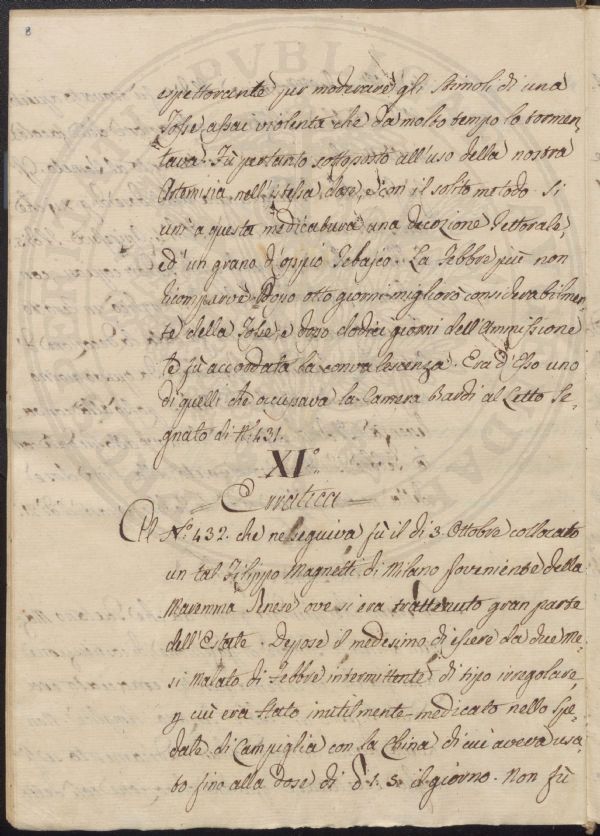 8
espettorante per moderare gli stimoli di una
Tosse assai violenta che da molto tempo lo tormen-
tava. Fù pertanto sottoposto all'uso della nostra
Artemisia nell'istessa dose, e con il solito metodo. Si
unì a questa medicatura una decozione Pettorale,
ed un grano d'oppio Tebaico. La Febbre più non
ricomparve. Dopo otto giorni migliorò considerabilmen-
te della Tosse, e dopo dodici giorni dell'Ammissione
fù accordata la convalescenza. Era d'Esso uno
di quelli che occupava la Camera Bardi al Letto Se-
gnato di N. 431.
XI.º
Erratica
Al Nº 432. che ne seguiva fù il dì 3. Ottobre collocato
un tal Filippo Magnetti di Milano proveniente della
Maremma Senese ove si era trattenuto gran parte
dell'Estate. Depose il medesimo di essere da due Me-
si Malato di Febbre intermittente di tipo irregolare,
p cui era stato inutilmente medicato nello Spe-
dale di Campiglia con la China di cui aveva usa-
to fino alla dose di 1. S. il giorno. Non fù